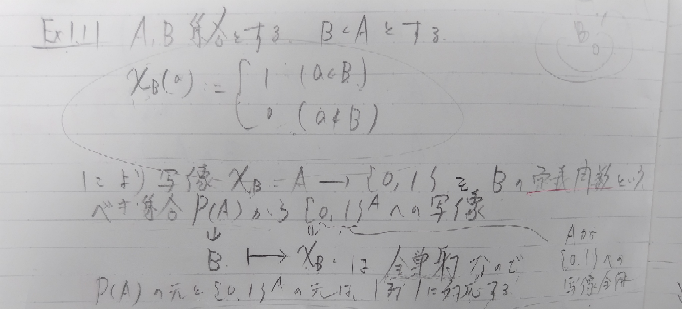 Ex 1.11 A, B 集合とする. B⊂A とする
χ_B(a) = { 1 (a∈B)
0 (a∉B)
B
0 1
により 写像 χ_B = A → {0, 1} を B の定義関数という
べき集合 P(A) から {0, 1}^A への写像
B ↦ χ_B は 全単射 なので
Aから
{0, 1}への
写像全体
P(A) の元と {0, 1}^A の元は, 1対1に対応する